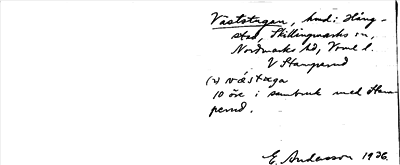 Väststugan, hmd i Häng-
sta, Skillingmarks sn,
Nordmarks hd, Vrml l.
V Stamperud
(v) västɷga
10 öre i sambruk med Stam
perud.
E. Andersson 1936.